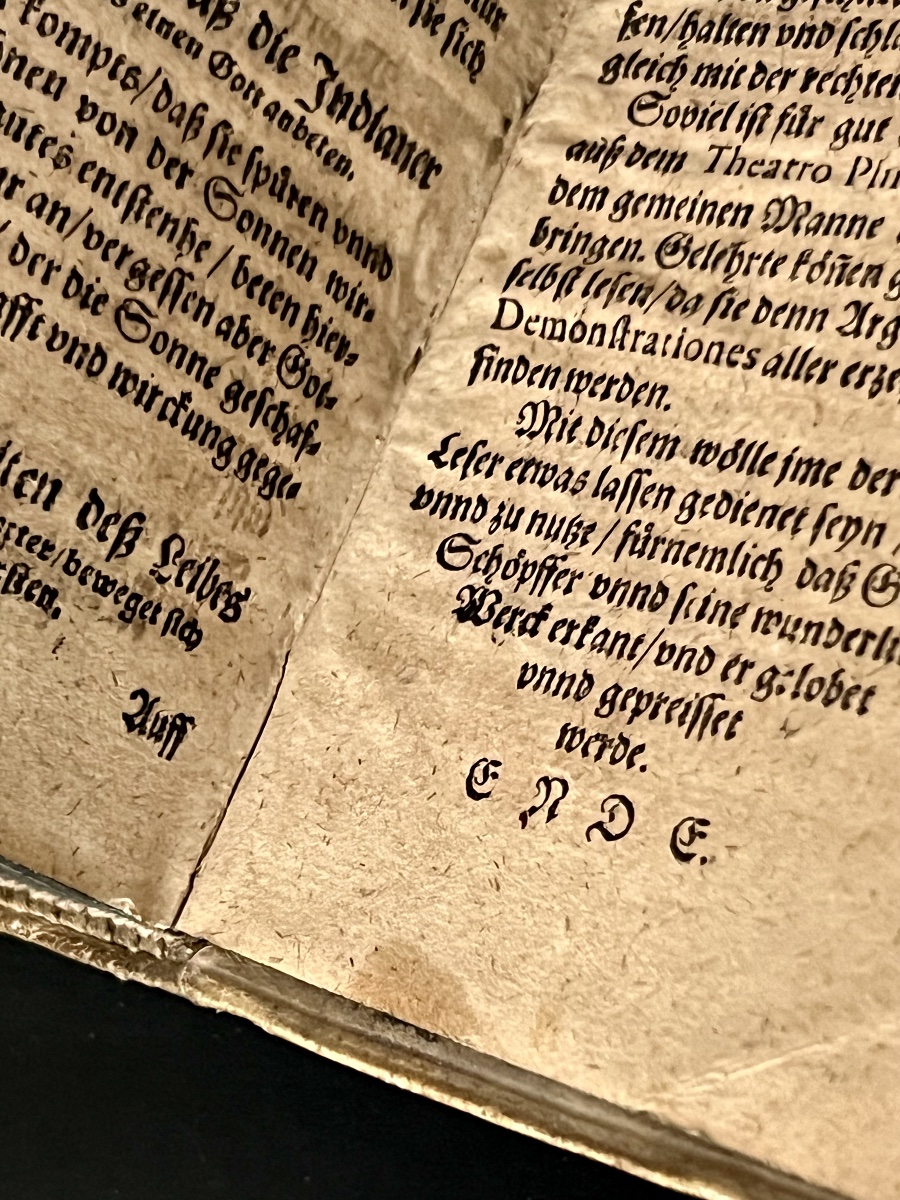 sie sich
die Indianer
einen Gott anbeten.
kompts/daß sie spüren vnnd
von der Sonnen wir-
entstehe / beten hier-
an/vergessen aber Got-
/ der die Sonne geschaf-
vnd wirckung gege-
deß Leibes
beweget sich
Auff
halten vnd
gleich mit der rechten
Soviel ist für gut
auß dem Theatro
dem gemeinen Manne
bringen. Gelehrte köñen
selbst lesen/da sie denn
Demonstrationes aller
finden werden.
Mit diesem wölle jme der
Leser etwas lassen gedienet seyn /
vnnd zu nutze / fürnemlich daß
Schöpffer vnnd seine
Werck erkant/vnd er gelobet
vnnd gepreisset
werde.
E N D E.